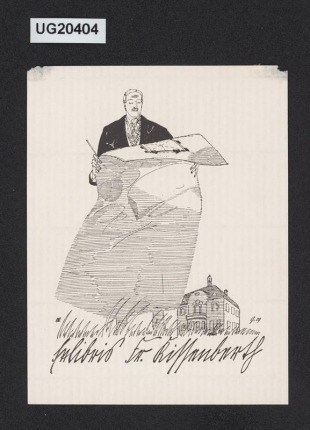 UG20404
Exlibris Fr. Rissenberth